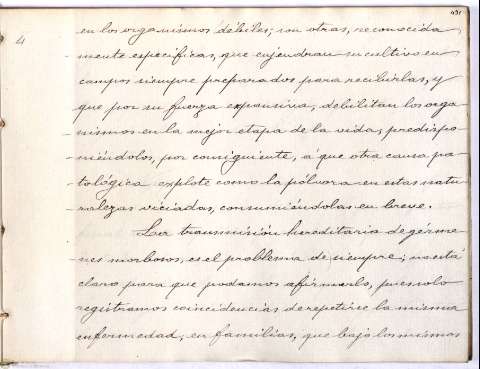 491
4
en los organismos débiles; son otras, reconocida
mente específicas, que enjendran su cultivo en
campos siempre preparados para recibirlas, y
que por su fuerza expansiva, debilitan los orga
nismos en la mejor etapa de la vida, predispo
niéndolos, por consiguiente, á que otra causa pa
tológica explote como la pólvora en estas natu
ralezas viciadas, consumiéndolas en breve.
La transmisión hereditaria de gérme
nes morbosos, es el problema de siempre; no está
claro para que podamos afirmarlo, pues solo
registramos coincidencias de repetirse la misma
enfermedad, en familias, que bajo los mismos